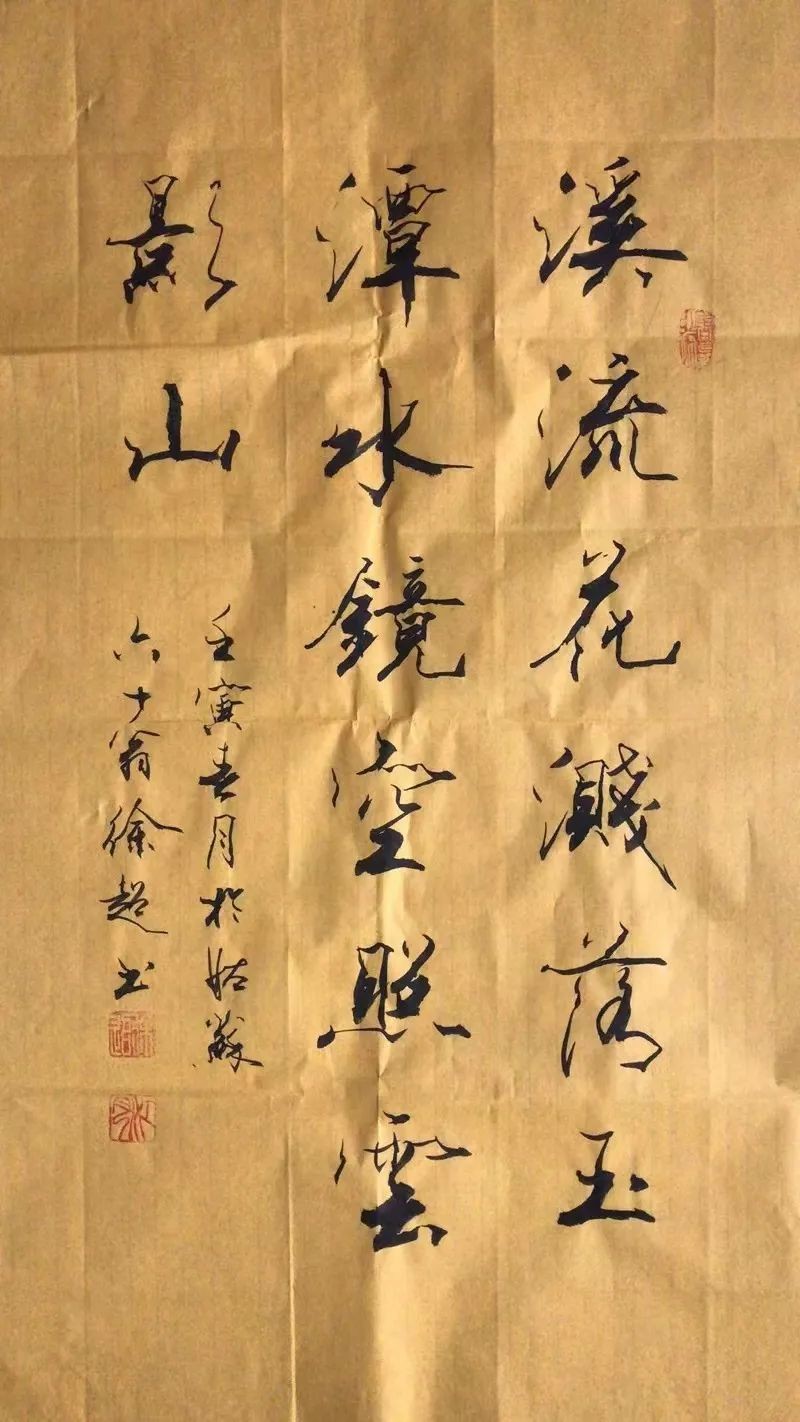 溪流花濺落玉
潭水鏡空照雲
影山
壬寅春月於姑蘇
六十翁徐超书